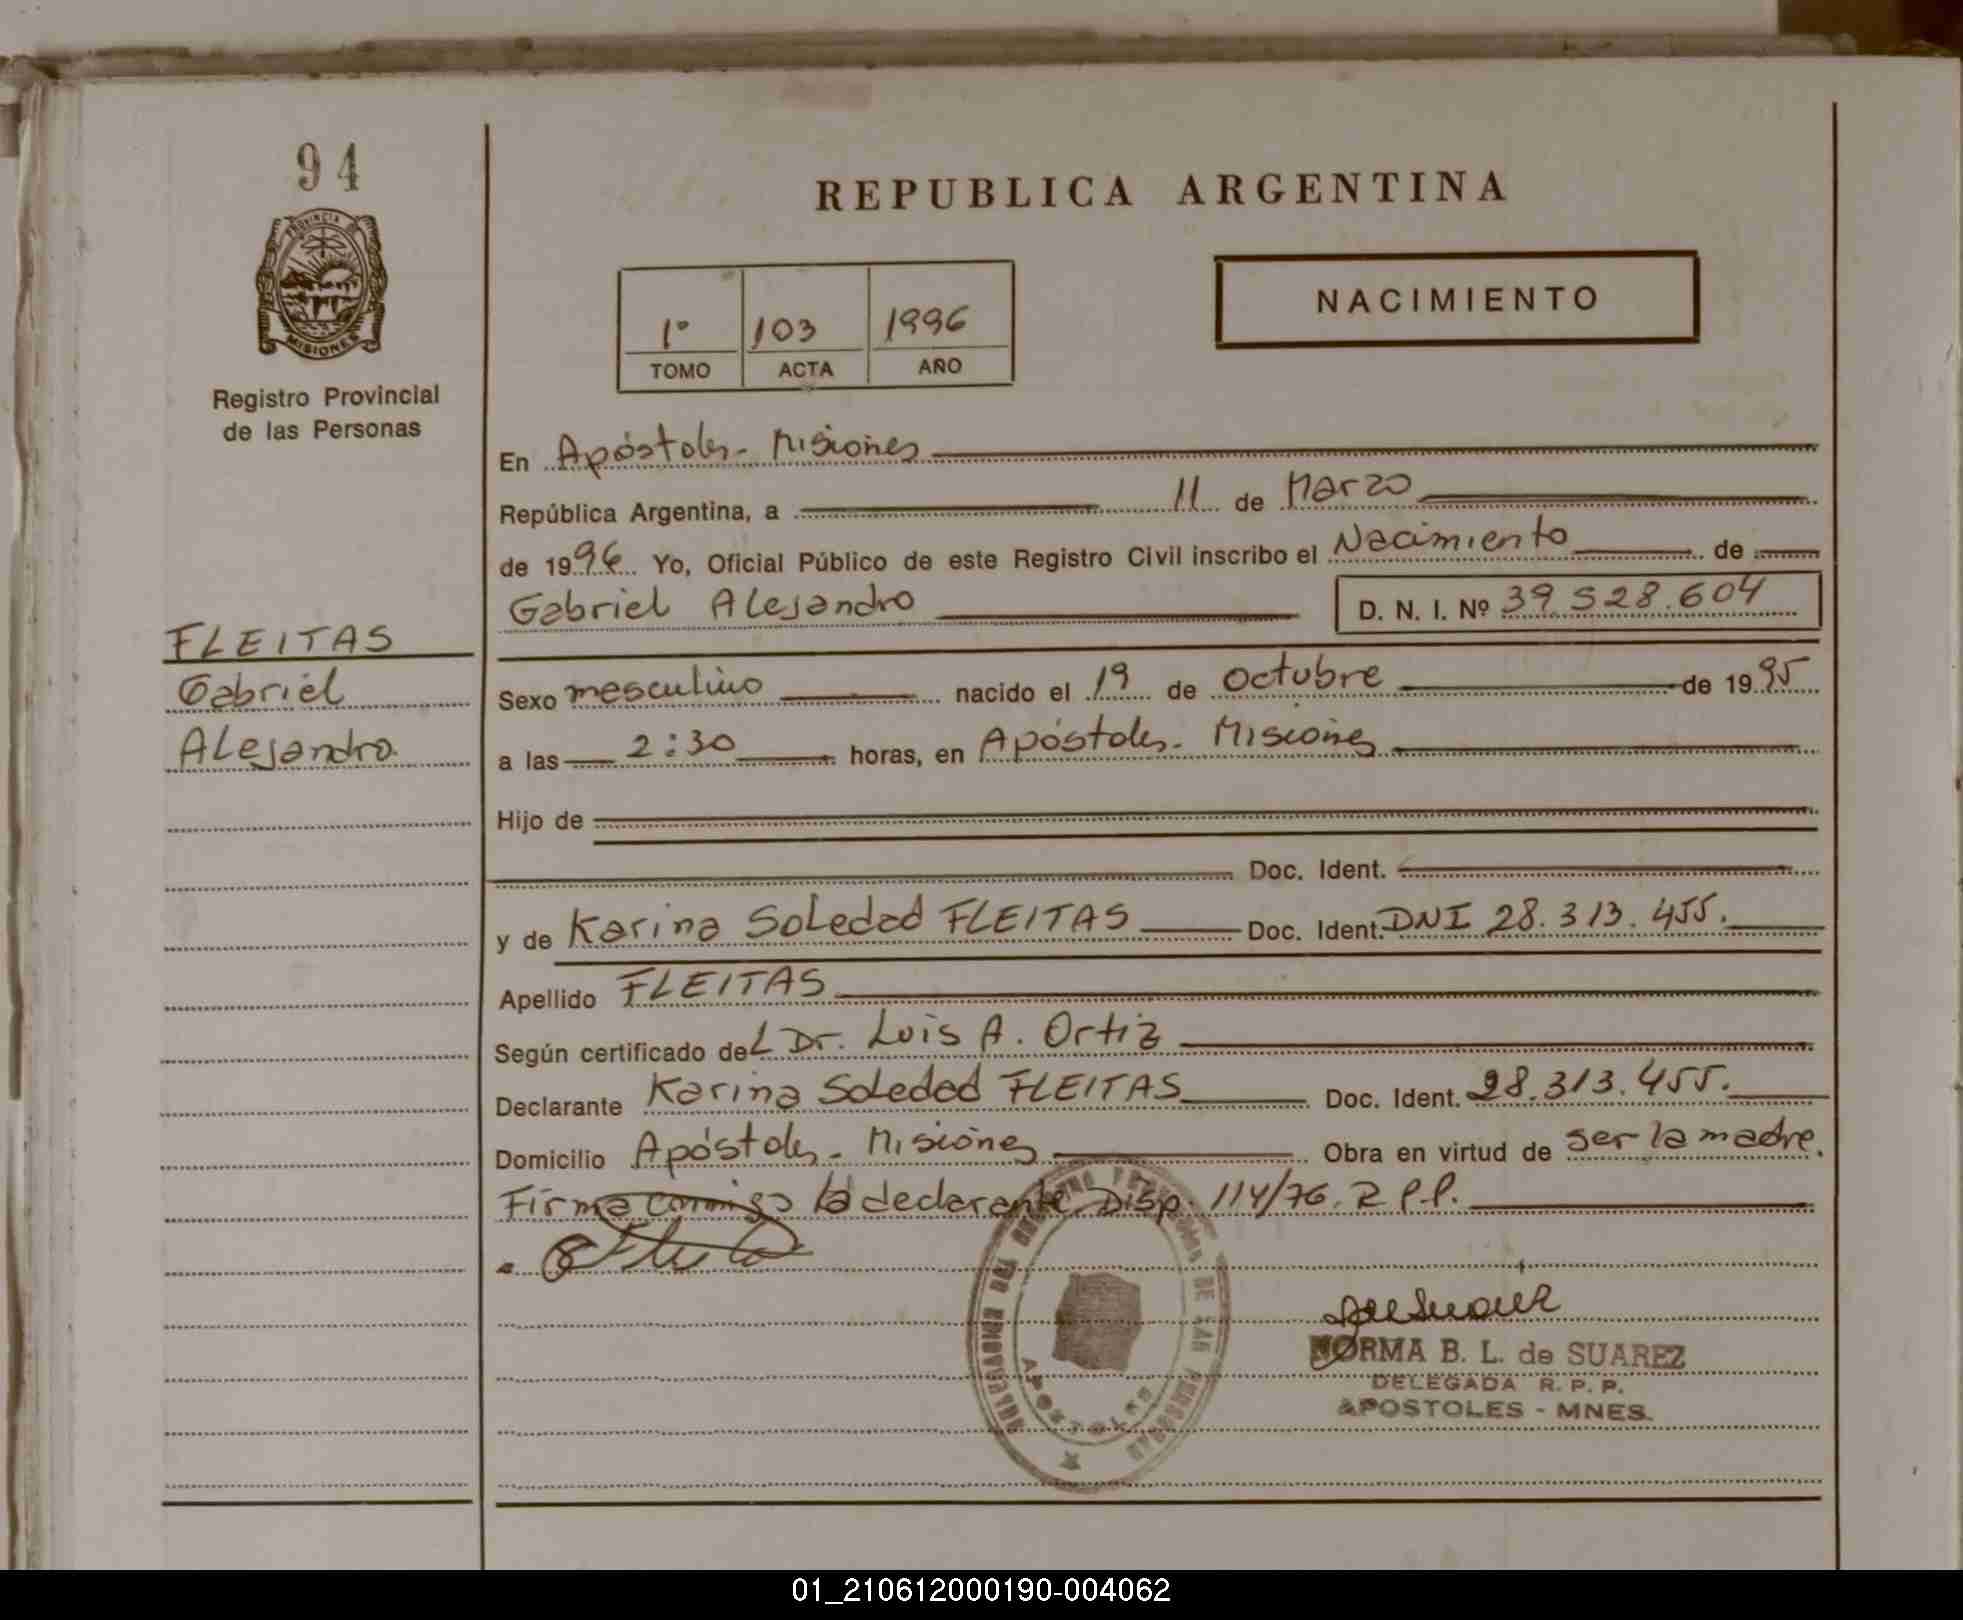 94
PROVINCIA DE
MISIONES
Registro Provincial
de las Personas
FLEITAS
Gabriel
Alejandro
REPUBLICA ARGENTINA
1º 103 1996
TOMO ACTA AÑO
NACIMIENTO
En Apóstoles - Misiones
República Argentina, a 11 de Marzo
de 1996 Yo, Oficial Público de este Registro Civil inscribo el Nacimiento de
Gabriel Alejandro D. N. I. Nº 39.528.604
Sexo masculino nacido el 19 de Octubre de 1995
a las 2:30 horas, en Apóstoles - Misiones
Hijo de
Doc. Ident.
y de Karina Soledad FLEITAS Doc. Ident. DNI 28.313.455.
Apellido FLEITAS
Según certificado del Dr. Luis A. Ortiz
Declarante Karina Soledad FLEITAS Doc. Ident. 28.313.455.
Domicilio Apóstoles - Misiones Obra en virtud de ser la madre.
Firma conmigo la declarante Disp. 114/76. R.P.P.
DELEGACION DEL REGISTRO PROVINCIAL DE LAS PERSONAS
APOSTOLES
NORMA B. L. de SUAREZ
DELEGADA R. P. P.
APOSTOLES - MNES.
01_210612000190-004062